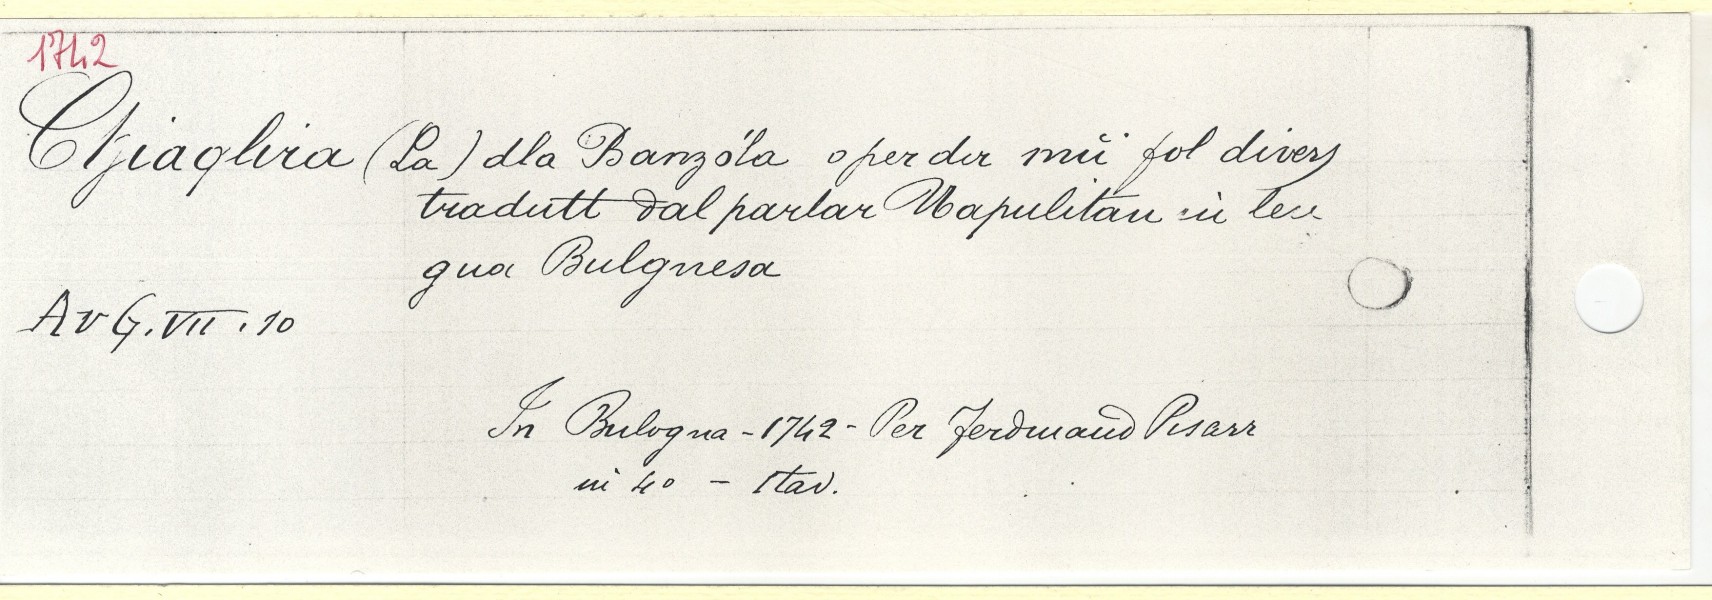 1742
Chiaqlira (La) dla Banzóla o per dir mii fol divers
tradutt dal parlar Napulitan in len
gua Bulgnesa
AV G. VII. 10
In Bulogna - 1742 - Per Ferdinand Pisarr
in 4º - 1 tav.